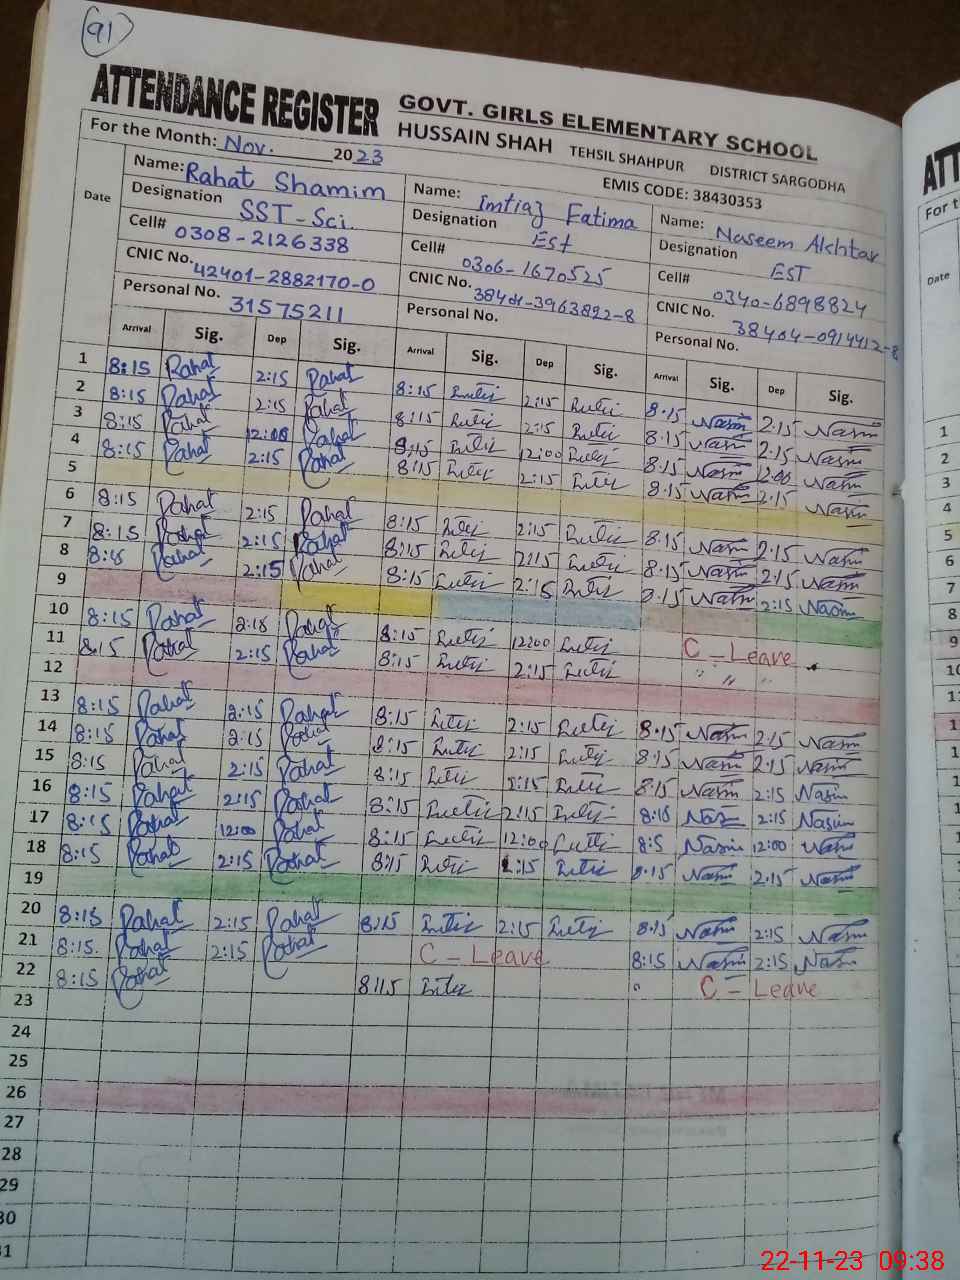 91
ATTENDANCE REGISTER
GOVT. GIRLS ELEMENTARY SCHOOL
HUSSAIN SHAH TEHSIL SHAHPUR DISTRICT SARGODHA
For the Month: Nov. 2023
EMIS CODE: 38430353
Date
Name: Rahat Shamim
Designation SST-Sci.
Cell# 0308-2126338
CNIC No. 42401-2882170-0
Personal No. 31575211
Name: Imtiaz Fatima
Designation Est
Cell# 0306-1670525
CNIC No. 38401-3963892-8
Personal No.
Name: Naseem Akhtar
Designation EST
Cell# 0340-6898824
CNIC No. 38404-0914412-8
Personal No.
Arrival Sig. Dep Sig. Arrival Sig. Dep Sig. Arrival Sig. Dep Sig.
1 8:15 Rahat 2:15 Rahat 8:15 2:15 8.15 Nasim 2.15 Nasim
2 8:15 Rahat 2:15 Rahat 8:15 2:15 8.15 Nasim 2.15 Nasim
3 8:15 Rahat 12:00 Rahat 8:15 12:00 8.15 Nasim Nasim
4 8:15 Rahat 2:15 Rahat 8:15 2:15 8.15 Nasim 2.15 Nasim
5
6 8:15 Rahat 2:15 Rahat 8:15 2:15 8.15 Nasim 2.15 Nasim
7 8:15 Rahat 2:15 Rahat 8:15 2:15 8.15 Nasim 2.15 Nasim
8 Rahat 2:15 Rahat 8:15 2:15 8.15 Nasim 2:15 Nasim
9
10 8:15 Rahat Rahat 8:15 12:00 C - Leave
11 8:15 Rahat 2:15 Rahat 8:15 2:15 " " "
12
13 8:15 Rahat 2:15 Rahat 8:15 2:15 8.15 Nasim 2.15 Nasim
14 8:15 Rahat 2:15 Rahat 8:15 2:15 8.15 Nasim 2.15 Nasim
15 8:15 Rahat 2:15 Rahat 8:15 2:15 8.15 Nasim 2:15 Nasim
16 8:15 Rahat 2:15 Rahat 8:15 2:15 2:15 Nasim
17 8:15 Rahat 12:00 Rahat 8:15 12:00 8:5 Nasim 12:00 Nasim
18 8:15 Rahat 2:15 Rahat 8:15 2:15 8.15 Nasim 2.15 Nasim
19
20 8:15 Rahat 2:15 Rahat 8:15 2:15 8.15 Nasim 2:15 Nasim
21 8:15. Rahat 2:15 Rahat C - Leave 8:15 Nasim 2:15 Nasim
22 8:15 Rahat 8:15 C - Leave
23
24
25
26
27
28
29
30
31
ATT
For t
Date
1
2
3
4
5
6
7
8
9
10
11
22-11-23 09:38